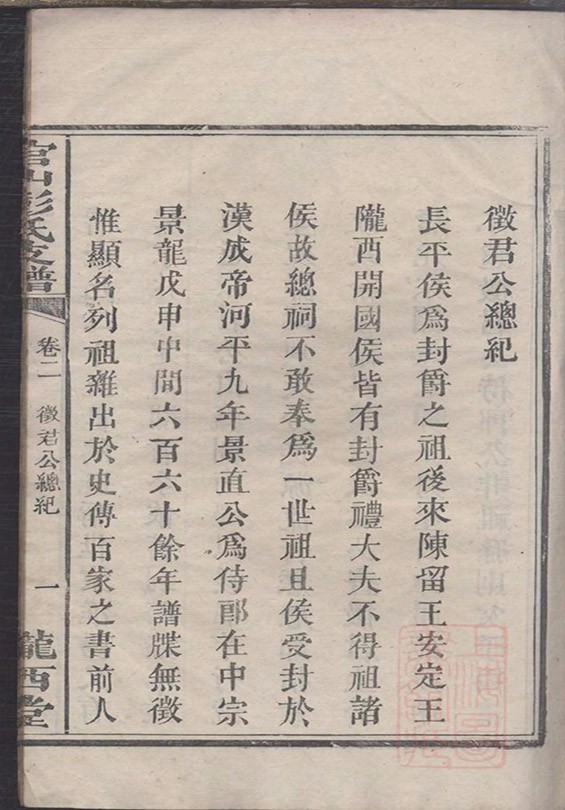 徵君公總紀
長平侯爲封爵之祖後來陳留王安定王
隴西開國侯皆有封爵禮大夫不得祖諸
侯故總祠不敢奉爲一世祖且侯受封於
漢成帝河平九年景直公爲侍郎在中宗
景龍戊申中間六百六十餘年譜牒無徵
惟顯名列祖雜出於史傳百家之書前人
官山彭氏支譜
卷二
徵君公總紀
一
隴西堂